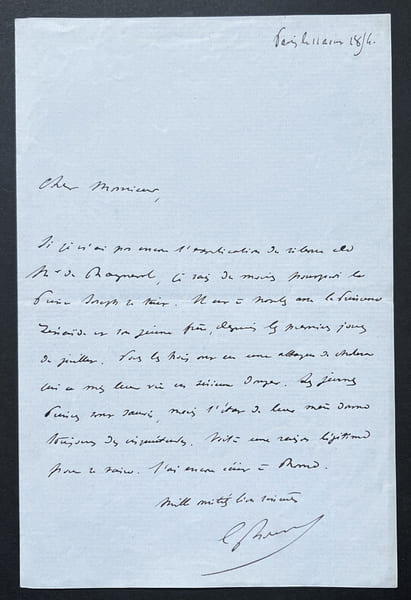 Paris le 11 aout 1854.
Cher Monsieur,
Si je n'ai pas encore l'explication du silence de
Mr de, je sais du moins pourquoi le
Prince Joseph se tait. Il est à Naples avec la Princesse
Zénaïde et son jeune frère, depuis les premiers jours
de juillet. Tous les trois ont eu une attaque de choléra
qui a mis leur vie en sérieux danger. Les jeunes
Princes sont sauvés, mais l'état de leur mère donne
toujours des inquiétudes. Voilà une raison légitime
pour se taire. J'ai encore écrit à Rome.
Mille amitiés bien sincères